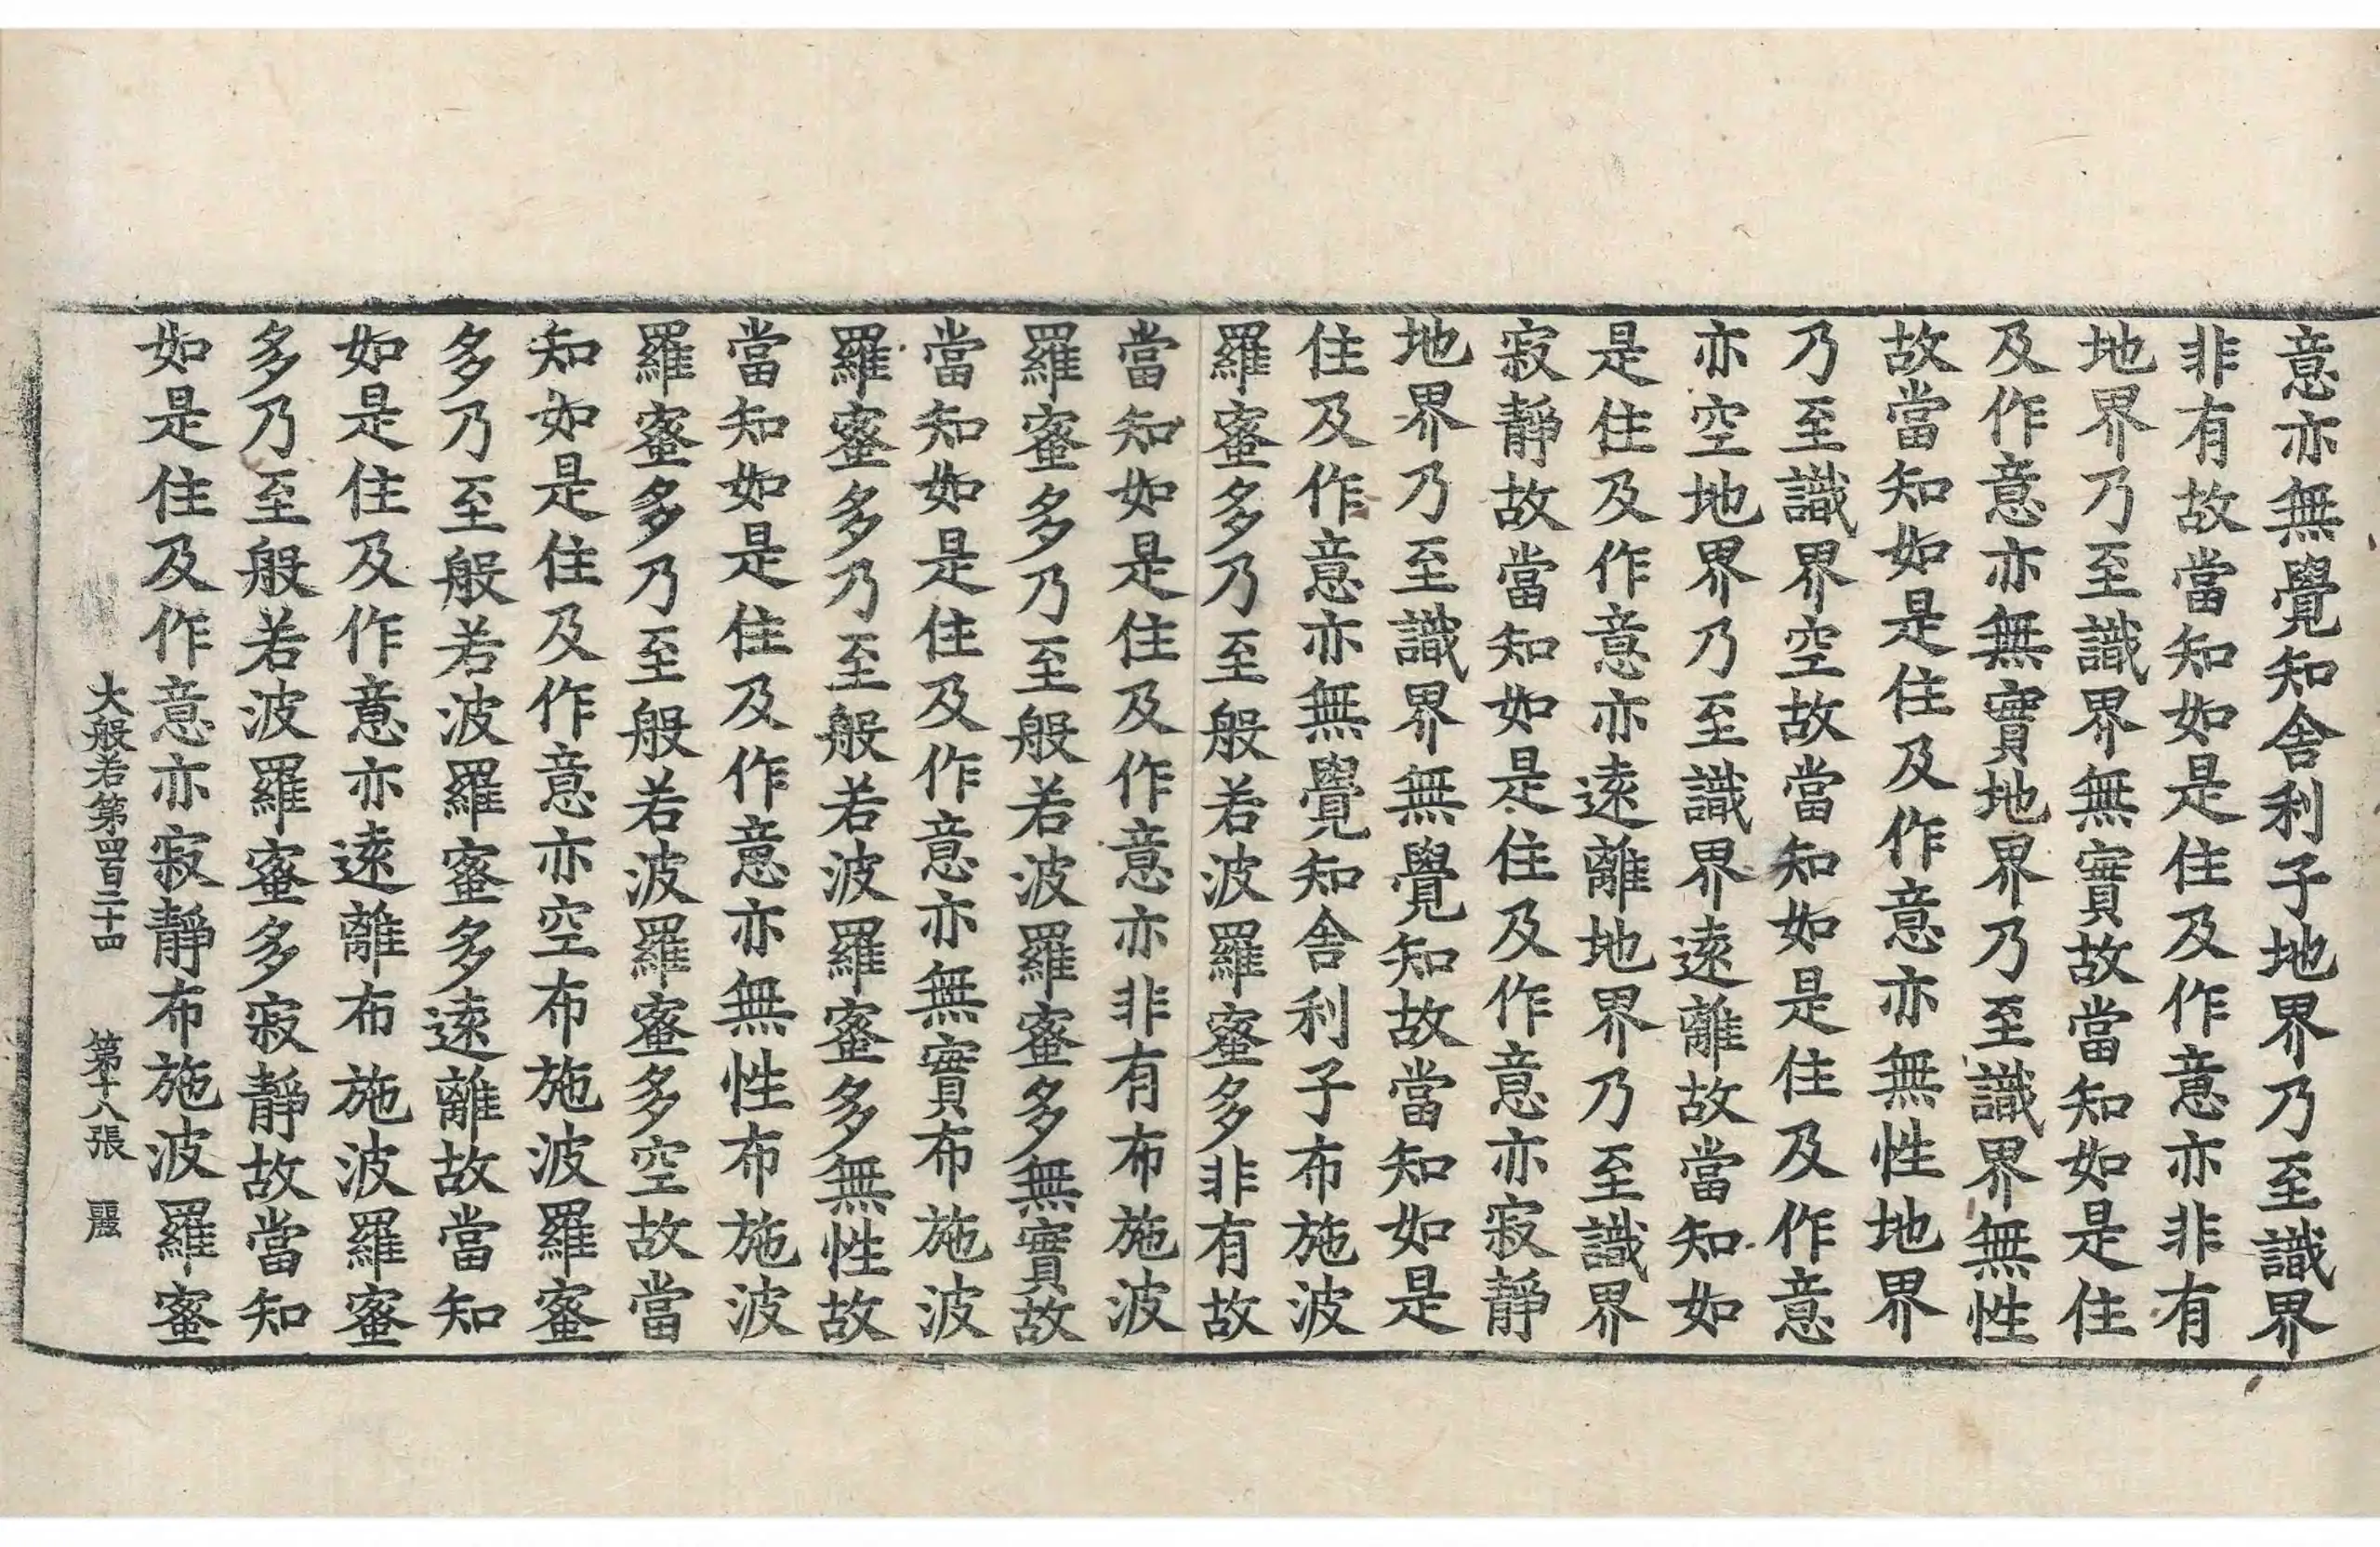 意亦無覺知舍利子地界乃至識界
非有故當知如是住及作意亦非有
地界乃至識界無實故當知如是住
及作意亦無實地界乃至識界無性
故當知如是住及作意亦無性地界
乃至識界空故當知如是住及作意
亦空地界乃至識界遠離故當知如
是住及作意亦遠離地界乃至識界
寂靜故當知如是住及作意亦寂靜
地界乃至識界無覺知故當知如是
住及作意亦無覺知舍利子布施波
羅蜜多乃至般若波羅蜜多非有故
當知如是住及作意亦非有布施波
羅蜜多乃至般若波羅蜜多無實故
當知如是住及作意亦無實布施波
羅蜜多乃至般若波羅蜜多無性故
當知如是住及作意亦無性布施波
羅蜜多乃至般若波羅蜜多空故當
知如是住及作意亦空布施波羅蜜
多乃至般若波羅蜜多遠離故當知
如是住及作意亦遠離布施波羅蜜
多乃至般若波羅蜜多寂靜故當知
如是住及作意亦寂靜布施波羅蜜
大般若第四百三十四 第十八張 麗